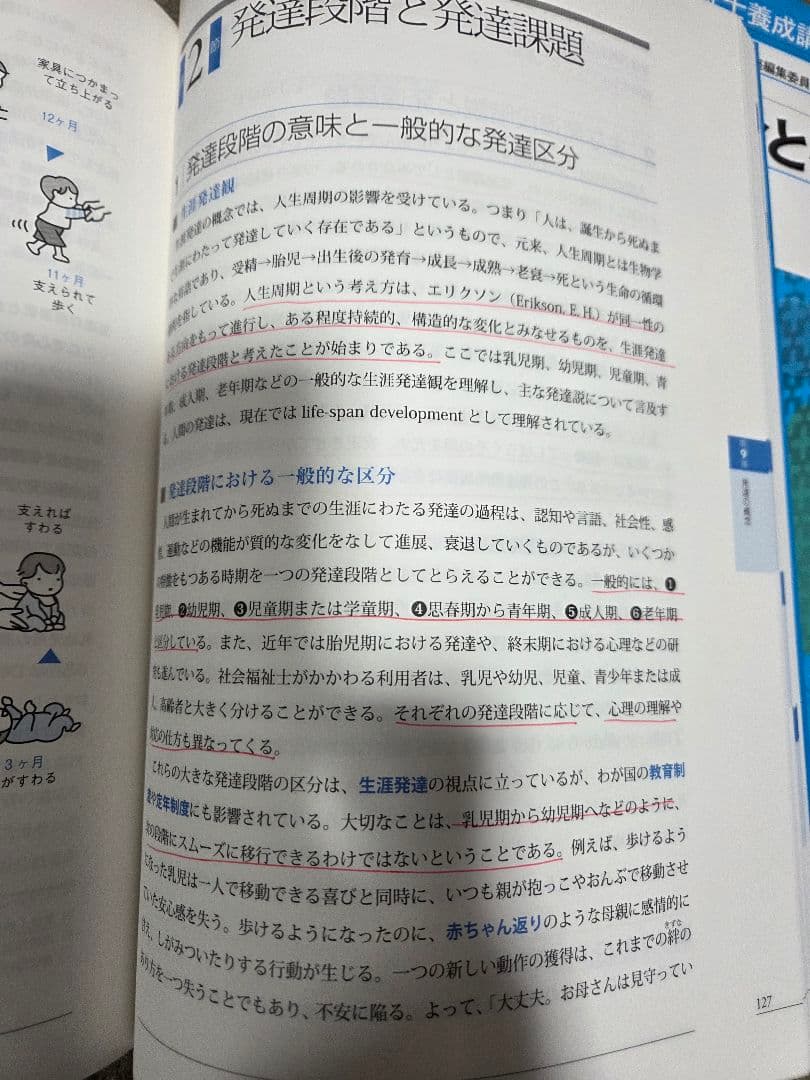 家具につかまっ
て立ち上がる
12ヶ月
11ヶ月
支えられて
歩く
支えれば
すわる
3ヶ月
がすわる
2 節 発達段階と発達課題
1 発達段階の意味と一般的な発達区分
■ 生涯発達観
発達の概念では、人生周期の影響を受けている。つまり「人は、誕生から死ぬま
にわたって発達していく存在である」というもので、元来、人生周期とは生物学
用語であり、受精→胎児→出生後の発育→成長→成熟→老衰→死という生命の循環
を指している。人生周期という考え方は、エリクソン（Erikson, E. H.）が同一性の
をもって進行し、ある程度持続的、構造的な変化とみなせるものを、生涯発達
における発達段階と考えたことが始まりである。ここでは乳児期、幼児期、児童期、青
年期、成人期、老年期などの一般的な生涯発達観を理解し、主な発達説について言及す
る。人間の発達は、現在では life-span development として理解されている。
■ 発達段階における一般的な区分
人間が生まれてから死ぬまでの生涯にわたる発達の過程は、認知や言語、社会性、感
情、運動などの機能が質的な変化をなして進展、衰退していくものであるが、いくつか
の特徴をもつある時期を一つの発達段階としてとらえることができる。一般的には、❶
乳児期、❷幼児期、❸児童期または学童期、❹思春期から青年期、❺成人期、❻老年期
と区分している。また、近年では胎児期における発達や、終末期における心理などの研
究も進んでいる。社会福祉士がかかわる利用者は、乳児や幼児、児童、青少年または成
人、高齢者と大きく分けることができる。それぞれの発達段階に応じて、心理の理解や
対応の仕方も異なってくる。
これらの大きな発達段階の区分は、生涯発達の視点に立っているが、わが国の教育制
度や定年制度にも影響されている。大切なことは、乳児期から幼児期へなどのように、
次の段階にスムーズに移行できるわけではないということである。例えば、歩けるよう
になった乳児は一人で移動できる喜びと同時に、いつも親が抱っこやおんぶで移動させ
ていた安心感を失う。歩けるようになったのに、赤ちゃん返りのような母親に感情的に
甘え、しがみついたりする行動が生じる。一つの新しい動作の獲得は、これまでの絆の
きずな
あり方を一つ失うことでもあり、不安に陥る。よって、「大丈夫。お母さんは見守ってい
第9章
発達の概念
127
士養成講
編集委員
と